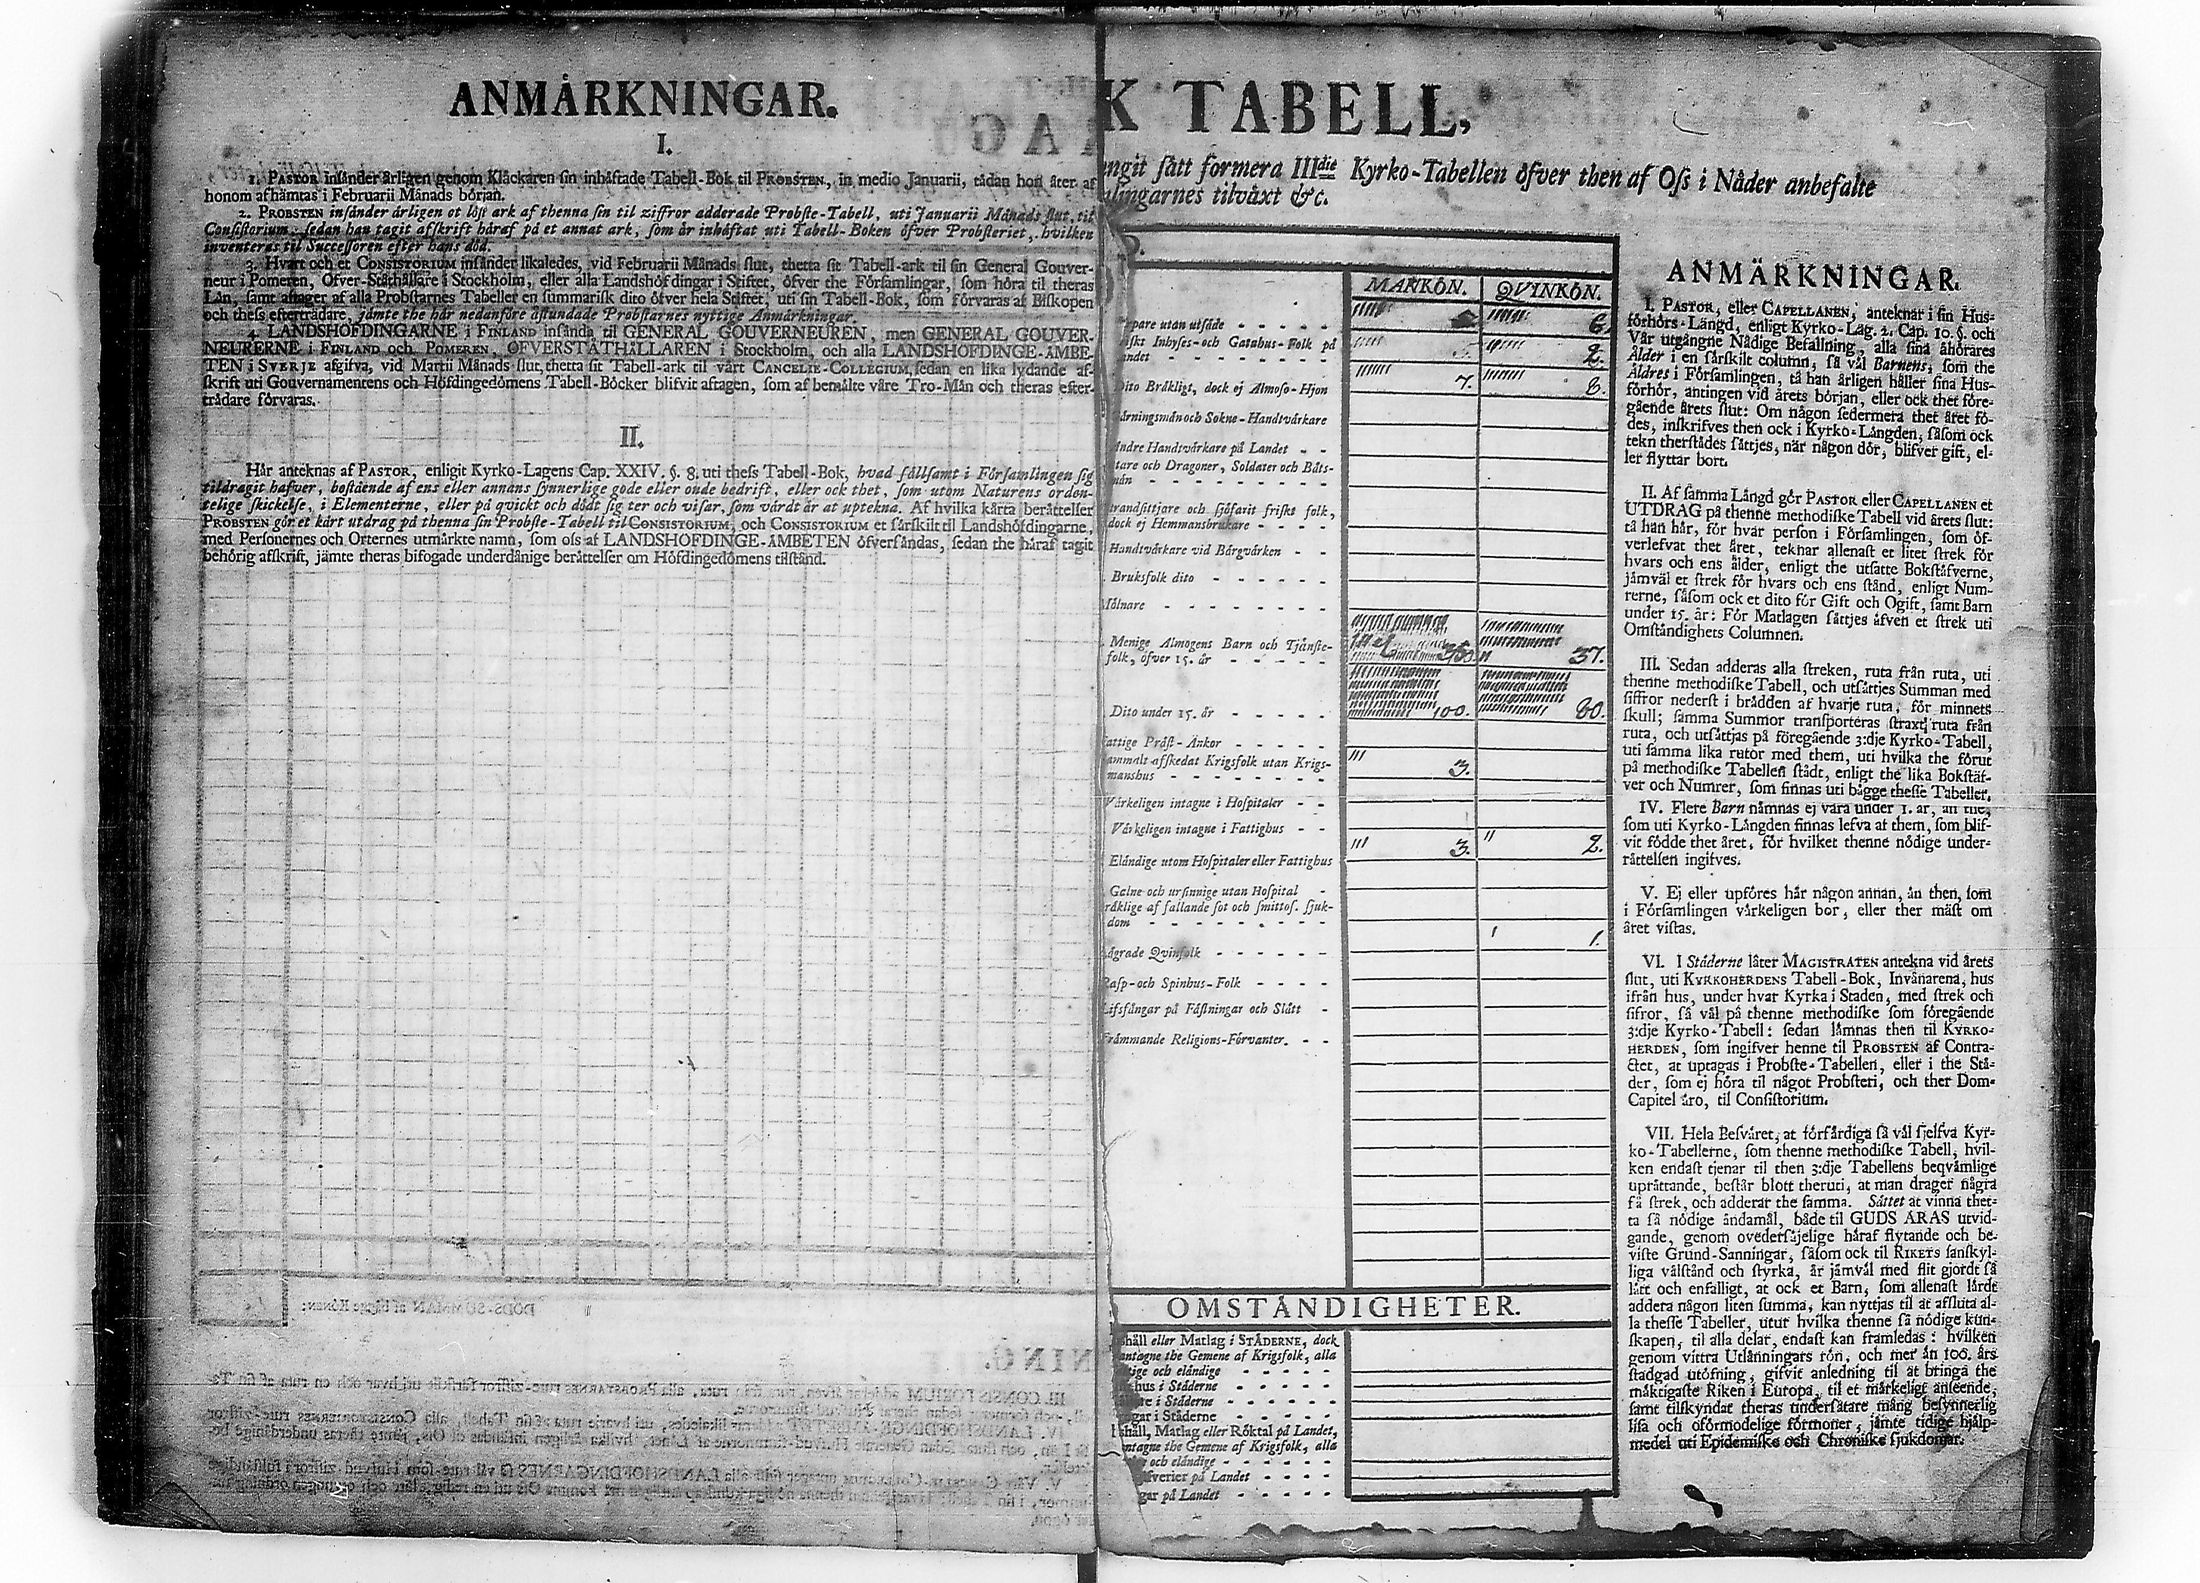 ANMÅRKNINGAR.
I.
1. PASTOR insånder årligen genom Klåckaren sin inhåftade Tabell-Bok til PROBSTEN, in medio Januarii, tådan hon åter af
honom afhåmtas i Februarii Månads början.
2. PROBSTEN insånder årligen et löst ark af thenna sin til ziffror adderade Probste-Tabell, uti Januarii Månads slut, til
Consistorium; sedan han tagit afskrift håraf på et annat ark, som år inhåftat uti Tabell-Boken öfver Probsteriet, hvilken
inventeras til Successoren efter hans död.
3. Hvart och et CONSISTORIUM insånder likaledes, vid Februarii Månads slut, thetta sit Tabell-ark til sin General Gouver-
neur i Pomeren, Öfver-Ståthållare i Stockholm, eller alla Landshöfdingar i Stiftet, öfver the Församlingar, som höra til theras
Lån, samt aftager af alla Probstarnes Tabeller en summarisk dito öfver hela Stiftet, uti sin Tabell-Bok, som förvaras af Biskopen
och thess eftertrådare, jåmte the hår nedanföre åstundade Probstarnes nyttige Anmårkningar.
4. LANDSHÖFDINGARNE i FINLAND insånda til GENERAL GOUVERNEUREN, men GENERAL GOUVER-
NEURERNE i FINLAND och POMEREN, ÖFVERSTÅTHÅLLAREN i Stockholm, och alla LANDSHÖFDINGE-ÅMBE-
TEN i SVERJE afgifva, vid Martii Månads slut, thetta sit Tabell-ark til vårt CANCELIE-COLLEGIUM, sedan en lika lydande af-
skrift uti Gouvernamentens och Höfdingedömens Tabell-Böcker blifvit aftagen, som af bemålte våre Tro-Mån och theras efter-
trådare förvaras.
II.
Hår anteknas af PASTOR, enligit Kyrko-Lagens Cap. XXIV. §. 8. uti thess Tabell-Bok, hvad sållsamt i Församlingen sig
tildragit hafver, bestående af ens eller annans synnerlige gode eller onde bedrift, eller ock thet, som utom Naturens orden-
telige skickelse, i Elementerne, eller på quickt och dödt sig ter och visar, som vårdt år at uptekna. Af hvilka kårta beråttelser
PROBSTEN gör et kårt utdrag på thenna sin Probste-Tabell til CONSISTORIUM, och CONSISTORIUM et sårskilt til Landshöfdingarne,
med Personernes och Orternes utmårkte namn, som oss af LANDSHÖFDINGE-ÅMBETEN öfversåndas, sedan the håraf tagit
behörig afskrift, jåmte theras bifogade underdånige beråttelser om Höfdingedömens tilstånd.
K TABELL,
ngit sått formera IIIdie Kyrko-Tabellen öfver then af Oss i Nåder anbefalte
lingarnes tilvåxt &c.
MANKÖN. QVINKÖN.
pare utan utsåde 6.
iskt Inhyses-och Gatuhus-Folk på
andet 5. 2.
Dito Bråkligt, dock ej Almoso-Hjon 7. 8.
årningsmån och Sokne-Handtvårkare
Andre Handtvårkare på Landet
tare och Dragoner, Soldater och Båts-
mån
trandsittjare och sjöfarit friskt folk,
dock ej Hemmansbrukare
Handtvårkare vid Bårgvårken
Bruksfolk dito
Mölnare
Menige Almogens Barn och Tjånste-
folk, öfver 15. år 37.
Dito under 15. år 100. 80.
attige Pråst-Ånkor
ammalt afskedat Krigsfolk utan Krigs-
manshus 3.
Vårkeligen intagne i Hospitaler
Vårkeligen intagne i Fattighus
Elåndige utom Hospitaler eller Fattighus 3. 2.
Galne och ursinnige utan Hospital
råklige af fallande sot och smittos. sjuk-
dom
ågrade Qvinfolk 1.
Rasp-och Spinhus-Folk
Lifsfångar på Fåstningar och Slått
Fråmmande Religions-Förvanter.
OMSTÅNDIGHETER.
shåll eller Matlag i STÅDERNE, dock
antagne the Gemene af Krigsfolk, alla
tige och elåndige
hus i Ståderne
re i Ståderne
gar i Ståderne
håll, Matlag eller Röktal på Landet,
ntagne the Gemene af Krigsfolk, alla
och elåndige
fverier på Landet
gar på Landet
ANMÄRKNINGAR.
I. PASTOR, eller CAPELLANEN, anteknar i sin Hus-
förhörs-Långd, enligt Kyrko-Lag. 2. Cap. 10. §. och
Vår utgångne Nådige Befallning, alla sina åhörares
Ålder i en sårskilt column, så vål Barnens, som the
Åldres i Församlingen, tå han årligen håller sina Hus-
förhör, antingen vid årets början, eller ock thet före-
gående årets slut: Om någon sedermera thet året fö-
des, inskrifves then ock i Kyrko-Långden, såsom ock
tekn therstådes såttjes, når någon dör, blifver gift, el-
ler flyttar bort.
II. Af samma Långd gör PASTOR eller CAPELLANEN et
UTDRAG på thenne methodiske Tabell vid årets slut:
tå han hår, för hvar person i Församlingen, som öf-
verlefvat thet året, teknar allenast et litet strek för
hvars och ens ålder, enligt the utsatte Bokståfverne,
jåmvål et strek för hvars och ens stånd, enligt Num-
rerne, såsom ock et dito för Gift och Ogift, samt Barn
under 15. år: För Matlagen såttjes åfven et strek uti
Omståndighets Columnen.
III. Sedan adderas alla streken, ruta från ruta, uti
thenne methodiske Tabell, och utsåttjes Summan med
siffror nederst i brådden af hvarje ruta, för minnets
skull; samma Summor transporteras straxt ruta från
ruta, och utsåttjas på föregående 3:dje Kyrko-Tabell,
uti samma lika rutor med them, uti hvilka the förut
på methodiske Tabellen stådt, enligt the lika Bokståf-
ver och Numrer, som finnas uti bågge thesse Tabeller.
IV. Flere Barn nåmnas ej vara under 1. år, ån the,
som uti Kyrko-Långden finnas lefva af them, som blif-
vit födde thet året, för hvilket thenne nödige under-
råttelsen ingifves.
V. Ej eller upföres hår någon annan, ån then, som
i Församlingen vårkeligen bor, eller ther måst om
året vistas.
VI. I Ståderne låter MAGISTRATEN antekna vid årets
slut, uti KYRKOHERDENS Tabell-Bok, Invånarena, hus
ifrån hus, under hvar Kyrka i Staden, med strek och
sifror, så vål på thenne methodiske som föregående
3:dje Kyrko-Tabell: sedan låmnas then til KYRKO-
HERDEN, som ingifver henne til PROBSTEN af Contra-
ctet, at uptagas i Probste-Tabellen, eller i the Stå-
der, som ej höra til något Probsteri, och ther Dom-
Capitel åro, til Consistorium.
VII. Hela Besvåret, at förfårdiga så vål sjelfva Kyr-
ko-Tabellerne, som thenne methodiske Tabell, hvil-
ken endast tjenar til then 3:dje Tabellens beqvåmlige
upråttande, består blott theruti, at man drager några
få strek, och adderar the samma. Såttet at vinna thet-
ta så nödige åndamål, både til GUDS ÅRAS utvid-
gande, genom ovedersåjelige håraf flytande och be-
viste Grund-Sanningar, såsom ock til RIKETS sanskyl-
liga vålstånd och styrka, år jåmvål med flit gjordt så
lått och enfalligt, at ock et Barn, som allenast lårdt
addera någon liten summa, kan nyttjas til at afsluta al-
la thesse Tabeller, utur hvilka thenne så nödige kun-
skapen, til alla delar, endast kan framledas: hvilken
genom vittra Utlånningars rön, och mer ån 100. års
stadgad utöfning, gifvit anledning til at bringa the
måktigaste Riken i Europa, til et mårkeligt anseende,
samt tilskyndat theras undersåtare mång besynnerlig
lisa och oförmodelige förmoner, jåmte tidige hjålp-
medel uti Epidemiske och Chroniske sjukdomar.